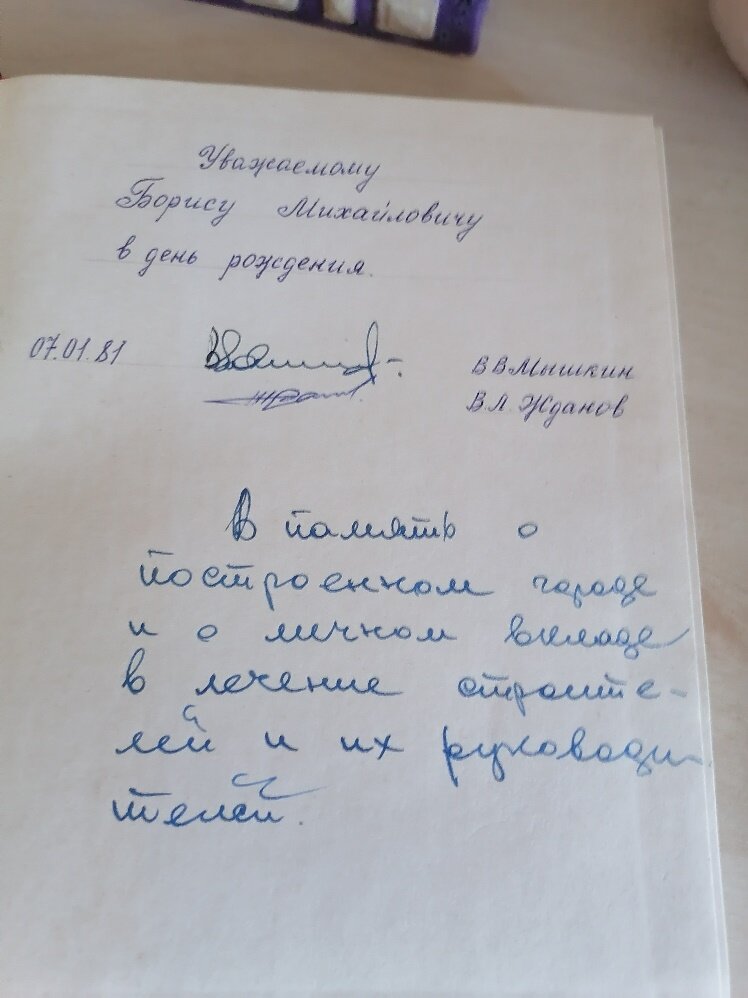 Уважаемому
Борису Михайловичу
в день рождения.
07.01.81 В В Мышкин
В Л. Жданов
В память о
построенном городе
и о личном вкладе
в лечение строите-
лей и их руководи-
телей.